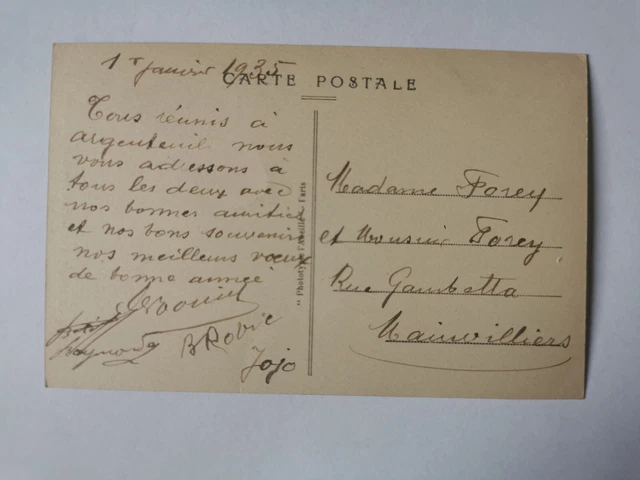 1r janvier 1935
CARTE POSTALE
Tous réunis à
argenteuil nous
vous adressons à
tous les deux avec
nos bonnes amitiés
et nos bons souvenirs
nos meilleurs vœux
de bonne année
BRobic
Jojo
"Phototypie l'Abeille", Paris
Madame Forey
et Monsieur Forey
Rue Gambetta
Mainvilliers